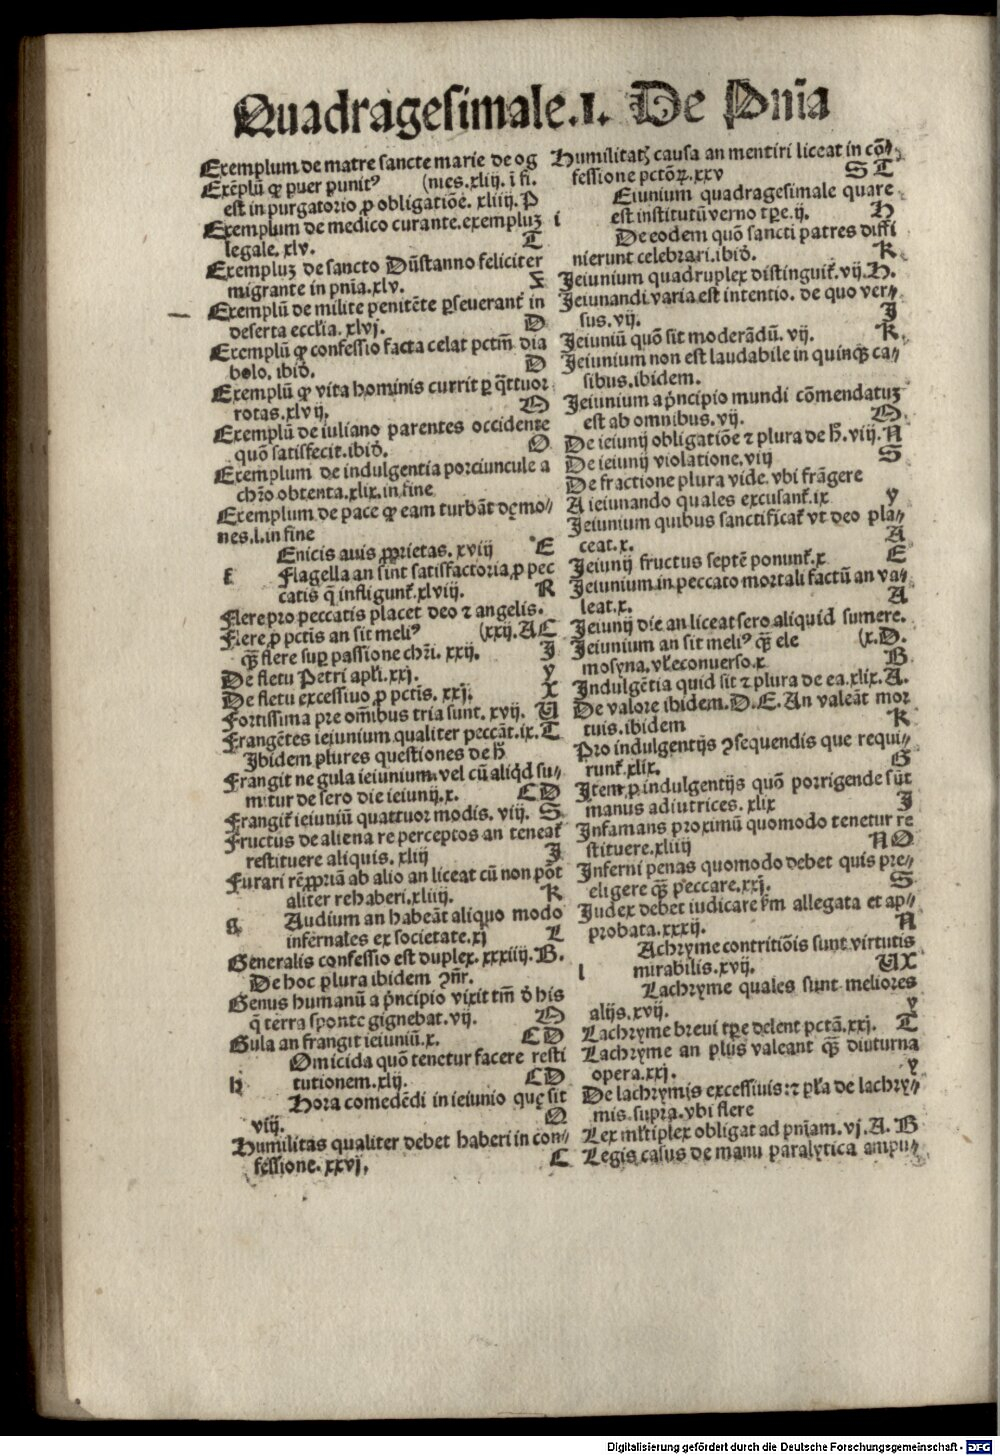 Quadragesimale.I. De Pnīa
Exemplum de matre sancte marie de og
Exēplū ꝙ puer punitꝰ (nies.xliij. ī fi.
est in purgatorio ꝓ obligatiōe. xliiij. P
Exemplum de medico curante.exempluʒ
legale. xlv. T
Exempluʒ de sancto Dūstanno feliciter
migrante in pnīa.xlv. X
Exemplū de milite penitēte ꝑseuerant̄ in
deserta eccľia. xlvj. D
Exemplū ꝙ confessio facta celat pctm̄ dia
bolo. ibid̄. D
Exemplū ꝙ vita hominis currit ꝑ q̄ttuor
rotas.xlvij. O
Exemplū de iuliano parentes occidente
quō satisfecit.ibid̄. O
Exemplum de indulgentia porciuncule a
chr̄o obtenta.xlix.in fine
Exemplum de pace ꝙ eam turbāt dęmo-
nes.l.in fine
Enicis auis ꝓprietas. xviij E
f Flagella an sint satisfactoria ꝓ pec
catis q̄ infligunt̄.xlviij. R
Flere pro peccatis placet deo ⁊ angelis.
Flere ꝓ pctīs an sit meliꝰ (xxij.AC
qȝ̄ flere suꝑ passione chr̄i. xxij. I
De fletu Petri apľi.xxj. y
De fletu excessiuo ꝓ pctīs. xxj. X
Fortissima pre om̄ibus tria sunt. xvij. U
Frangētes ieiunium qualiter peccāt.ix. T
Ibidem plures questiones de h̄
Frangit ne gula ieiunium.vel cū aliqd su-
mitur de sero die ieiunij.x. CD
Frangit̄ ieiuniū quattuor modis. viij. S
Fructus de aliena re perceptos an teneat̄
restituere aliquis.xliij I
Furari rē ꝓpriā ab alio an liceat cū non pōt
aliter rehaberi.xliiij. K
g Audium an habeāt aliquo modo
infernales ex societate.xj L
Generalis confessio est duplex. xxxiiij. B.
De hoc plura ibidem ꝯñr.
Genus humanū a pncipio vixit tm̄ d̄ his
q̄ terra sponte gignebat.vij. O
Gula an frangit ieiuniū.x. CD
Omicida quō tenetur facere resti
h tutionem.xlij. CD
Hora comedēdi in ieiunio quę sit
viij. Q
Humilitas qualiter debet haberi in con-
fessione.xxvj. C
Humilitatȝ causa an mentiri liceat in cō-
fessione pctōꝝ.xxv ST
Eiunium quadragesimale quare
i est institutū verno tꝑe.ij. H
De eodem quō sancti patres diffi
nierunt celebrari.ibid̄. K
Ieiunium quadruplex distinguit̄. vij. H.
Ieiunandi varia est intentio. de quo ver-
sus. vij. I
Ieiuniū quō sit moderādū. vij. K
Ieiunium non est laudabile in quinqȝ ca-
sibus.ibidem.
Ieiunium a pncipio mundi cōmendatuʒ
est ab omnibus. vij. O
De ieiunij obligatiōe ⁊ plura de h̄. viij. N
De ieiunij violatione.viij S
De fractione plura vide. vbi frāgere
A ieiunando quales excusant̄.ix y
Ieiunium quibus sanctificat̄ vt deo pla-
ceat.x. A
Ieiunij fructus septē ponunt̄.x E
Ieiunium in peccato mortali factū an va-
leat.x. A
Ieiunij die an liceat sero aliquid sumere.
Ieiunium an sit meliꝰ qȝ̄ ele (x.D.
mosyna.vľ econuerso.x B
Indulgētia quid sit ⁊ plura de ea.xlix. A.
De valore ibidem. D. E. An valeāt mor
tuis. ibidem K
Pro indulgentijs ꝯsequendis que requi-
runt̄.xlix. G
Item ꝓ indulgentijs quō porrigende sūt
manus adiutrices. xlix I
Infamans proximū quomodo tenetur re
stituere.xliiij NO
Inferni penas quomodo debet quis pre-
eligere qȝ̄ peccare.xxj. S
Iudex debet iudicare ẜm allegata et ap-
probata.xxxij. N
Achryme contritiōis sunt virtutis
l mirabilis.xvij. UX
Lachryme quales sunt meliores
alijs.xvij. y
Lachryme breui tꝑe delent pctā.xxj. T
Lachryme an plus valeant qȝ̄ diuturna
opera.xxj. y
De lachrymis excessiuis:⁊ pľa de lachry-
mis.supra.vbi flere
Lex mľtiplex obligat ad pnīam. vj. A. B
Legis casus de manu paralytica ampu-
Digitalisierung gefördert durch die Deutsche Forschungsgemeinschaft - DFG